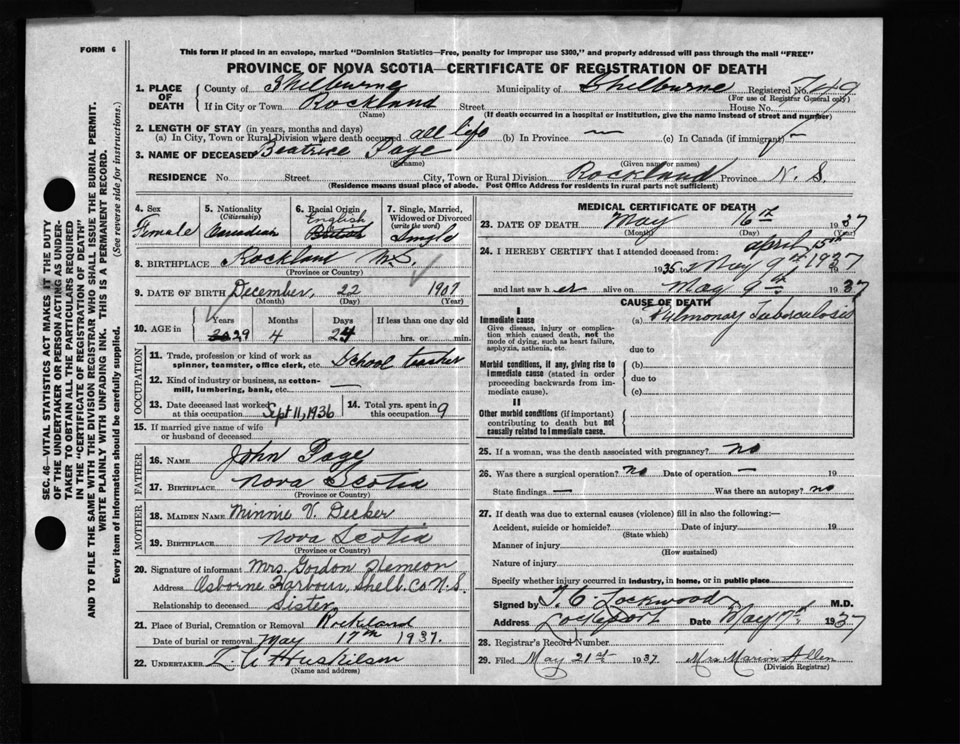 FORM 6
This form if placed in an envelope, marked "Dominion Statistics—Free, penalty for improper use $300," and properly addressed will pass through the mail "FREE"
PROVINCE OF NOVA SCOTIA—CERTIFICATE OF REGISTRATION OF DEATH
SEC. 46—VITAL STATISTICS ACT MAKES IT THE DUTY
OF THE UNDERTAKER OR PERSON ACTING AS UNDER-
TAKER TO OBTAIN ALL THE PARTICULARS REQUIRED
IN THE "CERTIFICATE OF REGISTRATION OF DEATH"
AND TO FILE THE SAME WITH THE DIVISION REGISTRAR WHO SHALL ISSUE THE BURIAL PERMIT.
WRITE PLAINLY WITH UNFADING INK. THIS IS A PERMANENT RECORD.
Every item of information should be carefully supplied. (See reverse side for instructions.)
1. PLACE OF DEATH County of Shelburne Municipality of Shelburne Registered No. 749
(For use of Registrar General only)
If in City or Town Rockland Street House No.
(Name) (If death occurred in a hospital or institution, give the name instead of street and number)
2. LENGTH OF STAY (in years, months and days)
(a) In City, Town or Rural Division where death occurred all life (b) In Province — (c) In Canada (if immigrant) —
3. NAME OF DECEASED Beatrice Page
(Surname) (Given name or names)
RESIDENCE No. Street City, Town or Rural Division Rockland Province N.S.
(Residence means usual place of abode. Post Office Address for residents in rural parts not sufficient)
4. Sex Female
5. Nationality (Citizenship) Canadian
6. Racial Origin English British
7. Single, Married, Widowed or Divorced (write the word) Single
8. BIRTHPLACE Rockland N.S.
(Province or Country)
9. DATE OF BIRTH December, 22 1907
(Month) (Day) (Year)
10. AGE in Years 29 Months 4 Days 24 If less than one day old hrs. or min.
OCCUPATION
11. Trade, profession or kind of work as spinner, teamster, office clerk, etc. School teacher
12. Kind of industry or business, as cotton-mill, lumbering, bank, etc. —
13. Date deceased last worked at this occupation Sept 11, 1936
14. Total yrs. spent in this occupation 9
15. If married give name of wife or husband of deceased
FATHER
16. NAME John Page
17. BIRTHPLACE Nova Scotia
(Province or Country)
MOTHER
18. MAIDEN NAME Minnie V. Decker
19. BIRTHPLACE Nova Scotia
(Province or Country)
20. Signature of informant Mrs. Gordon
Address Osborne Harbour, Shelb. Co N.S.
Relationship to deceased Sister
21. Place of Burial, Cremation or Removal Rockland
Date of burial or removal May 17th 1937.
22. UNDERTAKER L. A Huskilson
(Name and address)
MEDICAL CERTIFICATE OF DEATH
23. DATE OF DEATH May 16th 1937
(Month) (Day)
24. I HEREBY CERTIFY that I attended deceased from: April 15th
1935 to May 9th 1937 193
and last saw her alive on May 9th 1937
CAUSE OF DEATH
I
Immediate cause
Give disease, injury or complication which caused death, not the mode of dying, such as heart failure, asphyxia, asthenia, etc.
(a) Pulmonary Tuberculosis
due to
Morbid conditions, if any, giving rise to immediate cause (stated in order proceeding backwards from immediate cause).
(b)
due to
(c)
II
Other morbid conditions (if important) contributing to death but not causally related to immediate cause.
25. If a woman, was the death associated with pregnancy? no
26. Was there a surgical operation? no Date of operation — 19
State findings — Was there an autopsy? no
27. If death was due to external causes (violence) fill in also the following:—
Accident, suicide or homicide? Date of injury 19
(State which)
Manner of injury
(How sustained)
Nature of injury
Specify whether injury occurred in industry, in home, or in public place
Signed by Lockwood M.D.
Address Lockeport Date May 1937
28. Registrar's Record Number
29. Filed May 21st 1937 Mrs Marion Allen
(Division Registrar)